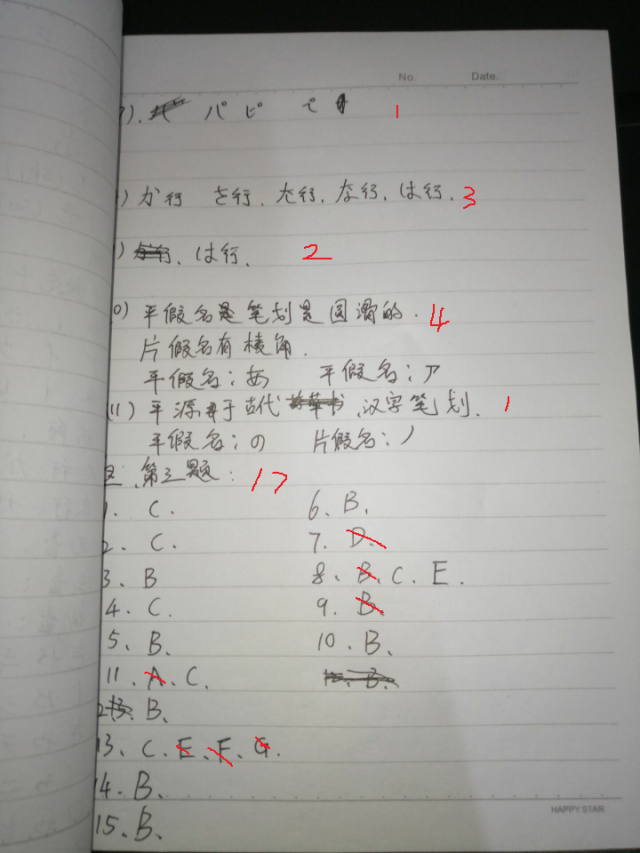 No. Date.
7). パ ピ ペ 1
) か行 さ行、た行、な行、は行. 3
) は行. 2
0) 平假名是笔划是圆滑的. 4
片假名有棱角.
平假名:あ 平假名:ア
(11) 平源于古代 汉字笔划. 1
平假名:の 片假名:ノ
第三题: 17
1. C. 6. B.
2. C. 7. D.
3. B 8. B. C. E.
4. C. 9. B.
5. B. 10. B.
11. A. C.
B.
13. C. E. F. G.
14. B.
15. B.
HAPPY STAR